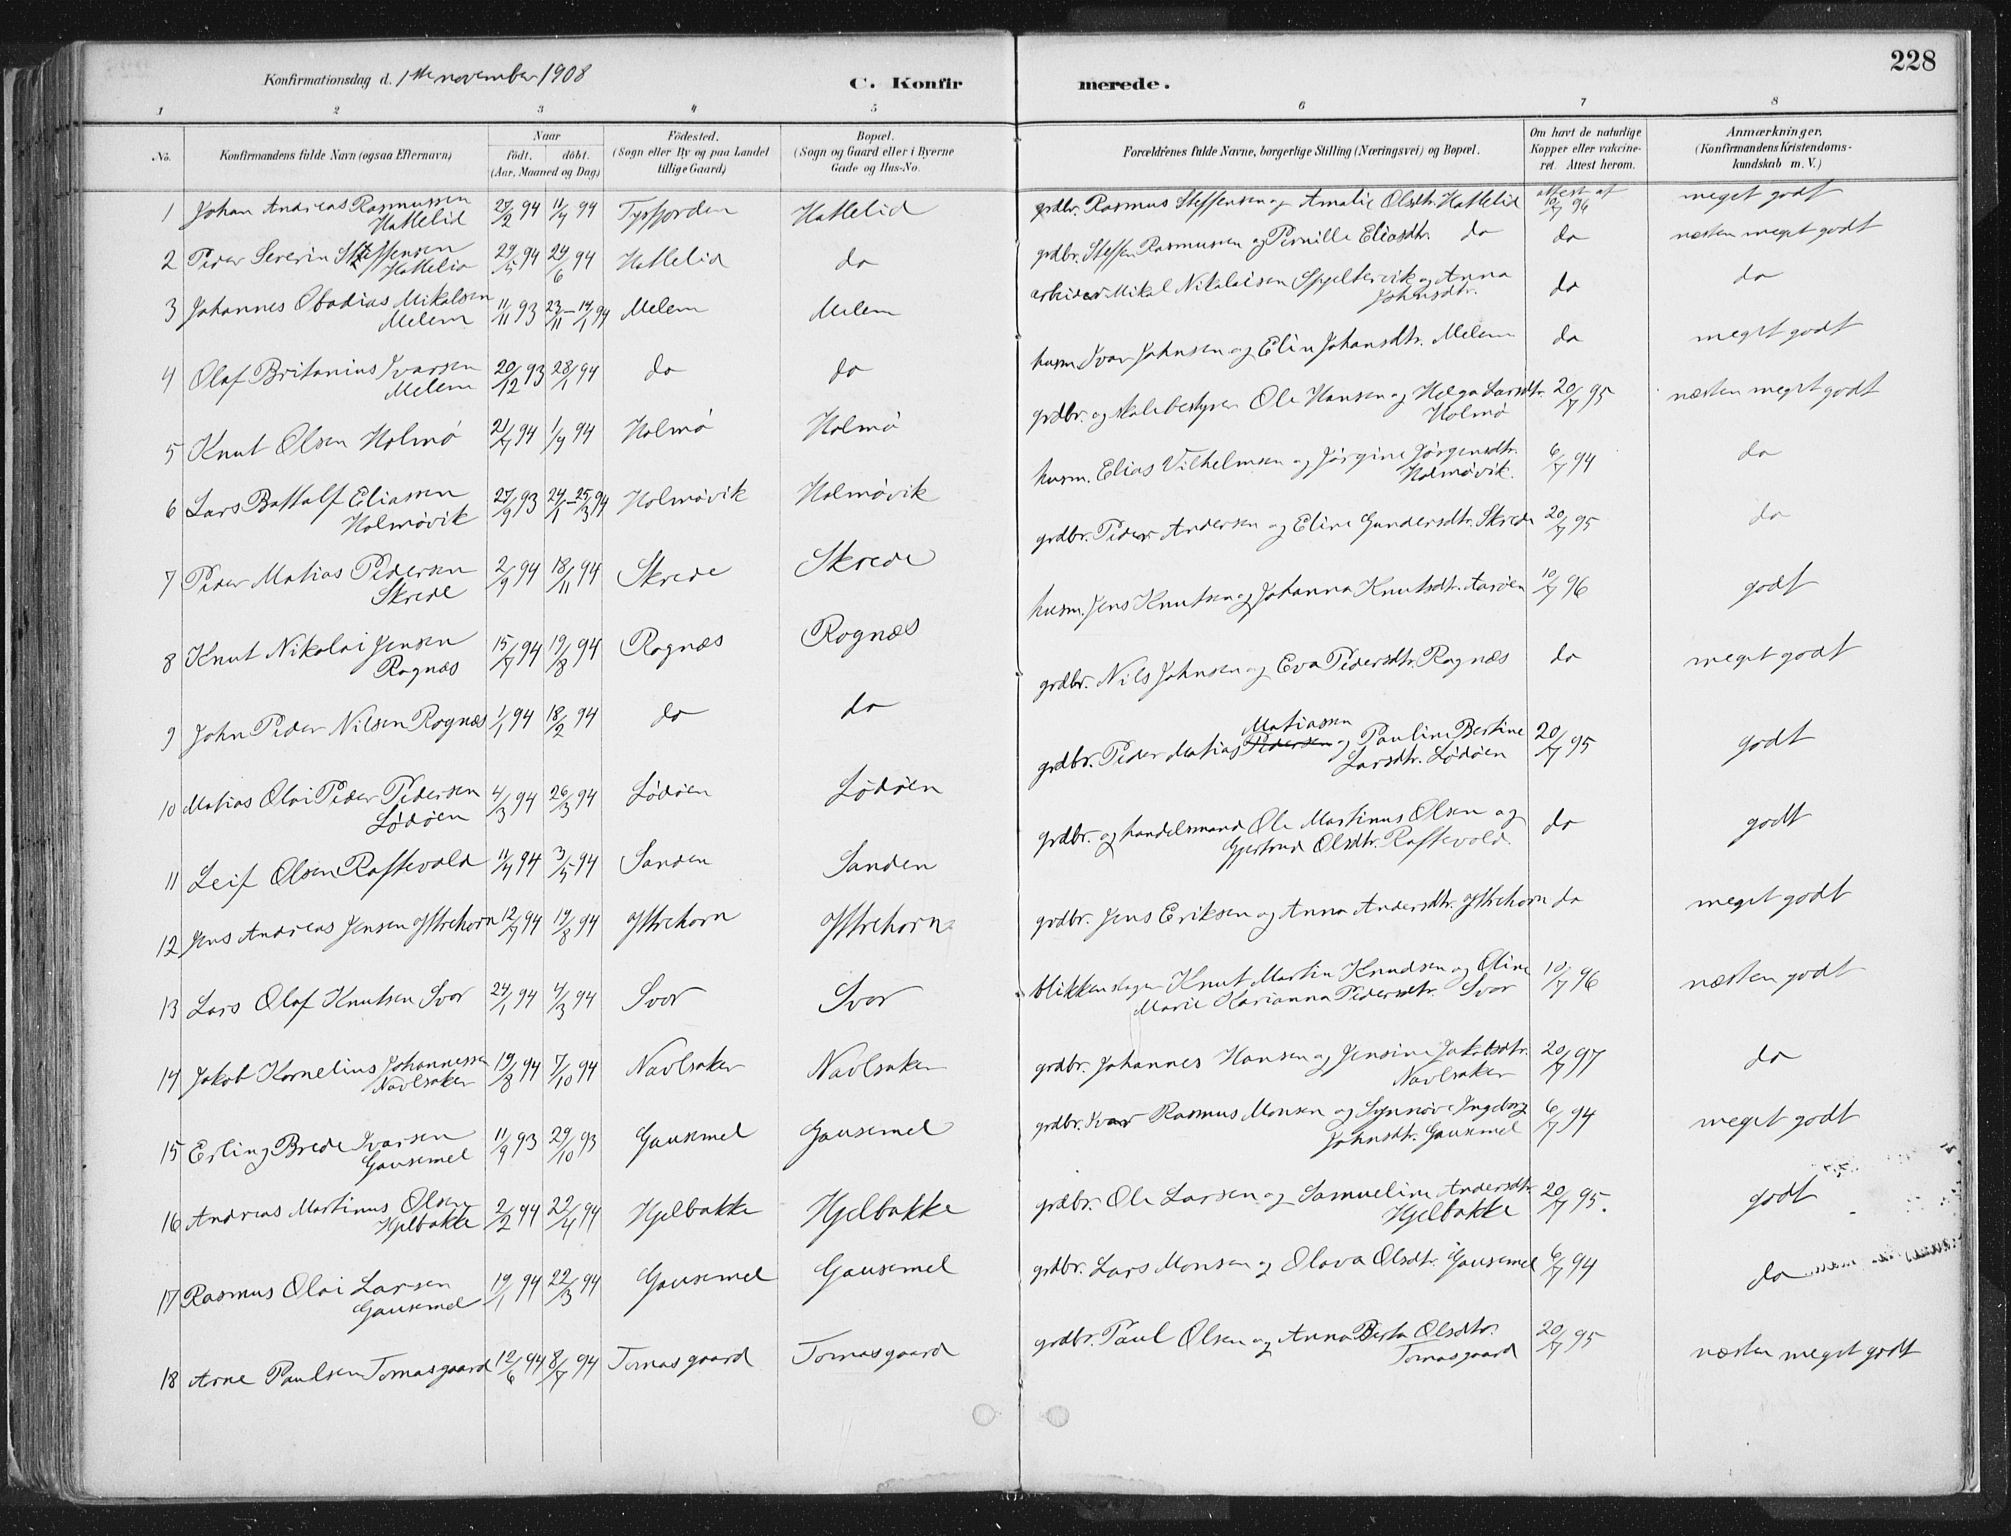 228
Konfirmationsdag d. 1ste november 1908
C. Konfirmerede.
1 2 3 4 5 6 7 8
No. Konfirmandens fulde Navn (ogsaa Efternavn) Naar födt. döbt. (Aar, Maaned og Dag) Fødested. (Sogn eller By og paa Landet tillige Gaard) Bopæl. (Sogn og Gaard eller i Byerne Gade og Hus-No. Forældrenes fulde Navne, borgerlige Stilling (Næringsvei) og Bopæl. Om havt de naturlige Kopper eller vakcineret. Attest herom. Anmærkninger. (Konfirmandens Kristendomskundskab m. V.)
1 Johan Andreas Rasmussen Hattelid 27/2 94 11/4 94 Tysfjorden Hattelid grdbr. Rasmus Steffensen og Amalie Olsdtr. Hattelid attest af 10/7 96 meget godt
2 Peder Severin Steffensen Hattelid 29/5 94 24/6 94 Hattelid do grdbr. Steffen Rasmussen og Pernille Eliasdtr. do do næsten meget godt
3 Johannes Obadias Mikalsen Melem 11/11 93 23/11 - 14/1 94 Melem Melem arbeider Mikal Nikolaisen Spjeltervik og Anna Johnsdtr. do do
4 Olaf Britanius Ivarsen Melem 20/12 93 28/1 94 do do husm. Ivar Johnsen og Elin Johansdtr. Melem do meget godt
5 Knut Olsen Holmö 21/7 94 1/9 94 Holmö Holmö grdbr. og skolebestyrer Ole Hansen og Helga Larsdtr. Holmö 20/7 95 næsten meget godt
6 Lars Battalf Eliassen Holmövik 27/9 93 24/1 - 25/3 94 Holmövik Holmövik husm. Elias Vilhelmsen og Jörgine Jörgensdtr. Holmövik. 6/7 94 do
7 Peder Matias Pedersen Skrede 2/9 94 18/11 94 Skrede Skrede grdbr. Peder Andersen og Eline Gundersdtr. Skrede 20/7 95 do
8 Knut Nikolai Jensen Rognæs 15/7 94 19/8 94 Rognæs Rognæs husm. Jens Knutsen og Johanna Knutsdtr. Aaröen 10/7 96 godt
9 John Peder Nilsen Rognæs 1/1 94 18/2 94 do do grdbr. Nils Johnsen og Eva Pedersdtr. Rognæs do meget godt
10 Matias Olai Peder Pedersen Lödöen 4/3 94 26/3 94 Lödöen Lödöen grdbr. Peder Matias Pedersen Matiassen og Pauline Bertine Larsdtr. Lödöen 20/7 95 godt
11 Leif Olsen Raftevold 11/4 94 3/5 94 Sanden Sanden grdbr. og handelsmand Ole Martinus Olsen og Gjertrud Olsdtr. Raftevold. do godt
12 Jens Andreas Jensen Yttrehorn 12/7 94 19/8 94 Yttrehorn Yttrehorn grdbr. Jens Eriksen og Anna Andersdtr. Yttrehorn do meget godt
13 Lars Olaf Knutsen Svor 24/1 94 4/3 94 Svor Svor blikkenslager Knut Martin Knudsen og Oline Marie Karianna Pedersdtr. Svor 10/7 96 næsten godt
14 Jakob Kornelius Johannessen Navlsaker 19/8 94 7/10 94 Navlsaker Navlsaker grdbr. Johannes Hansen og Jensine Jakobsdtr. Navlsaker 20/7 97 do
15 Erling Brede Ivarsen Gausemel 11/9 93 29/10 93 Gausemel Gausemel grdbr. Ivar Rasmus Monsen og Synnöve Ingeborg Johnsdtr. Gausemel 6/7 94 meget godt
16 Andreas Martinus Olsen Hjelbakke 2/2 94 22/4 94 Hjelbakke Hjelbakke grdbr. Ole Larsen og Samueline Andersdtr. Hjelbakke 20/7 95. godt
17 Rasmus Olai Larsen Gausemel 19/1 94 22/3 94 Gausemel Gausemel grdbr. Lars Monsen og Olava Olsdtr. Gausemel 6/7 94 do
18 Arne Paulsen Tomasgaard 12/6 94 8/7 94 Tomasgaard Tomasgaard grdbr. Paul Olsen og Anna Berta Olsdtr. Tomasgaard 20/7 95 næsten meget godt